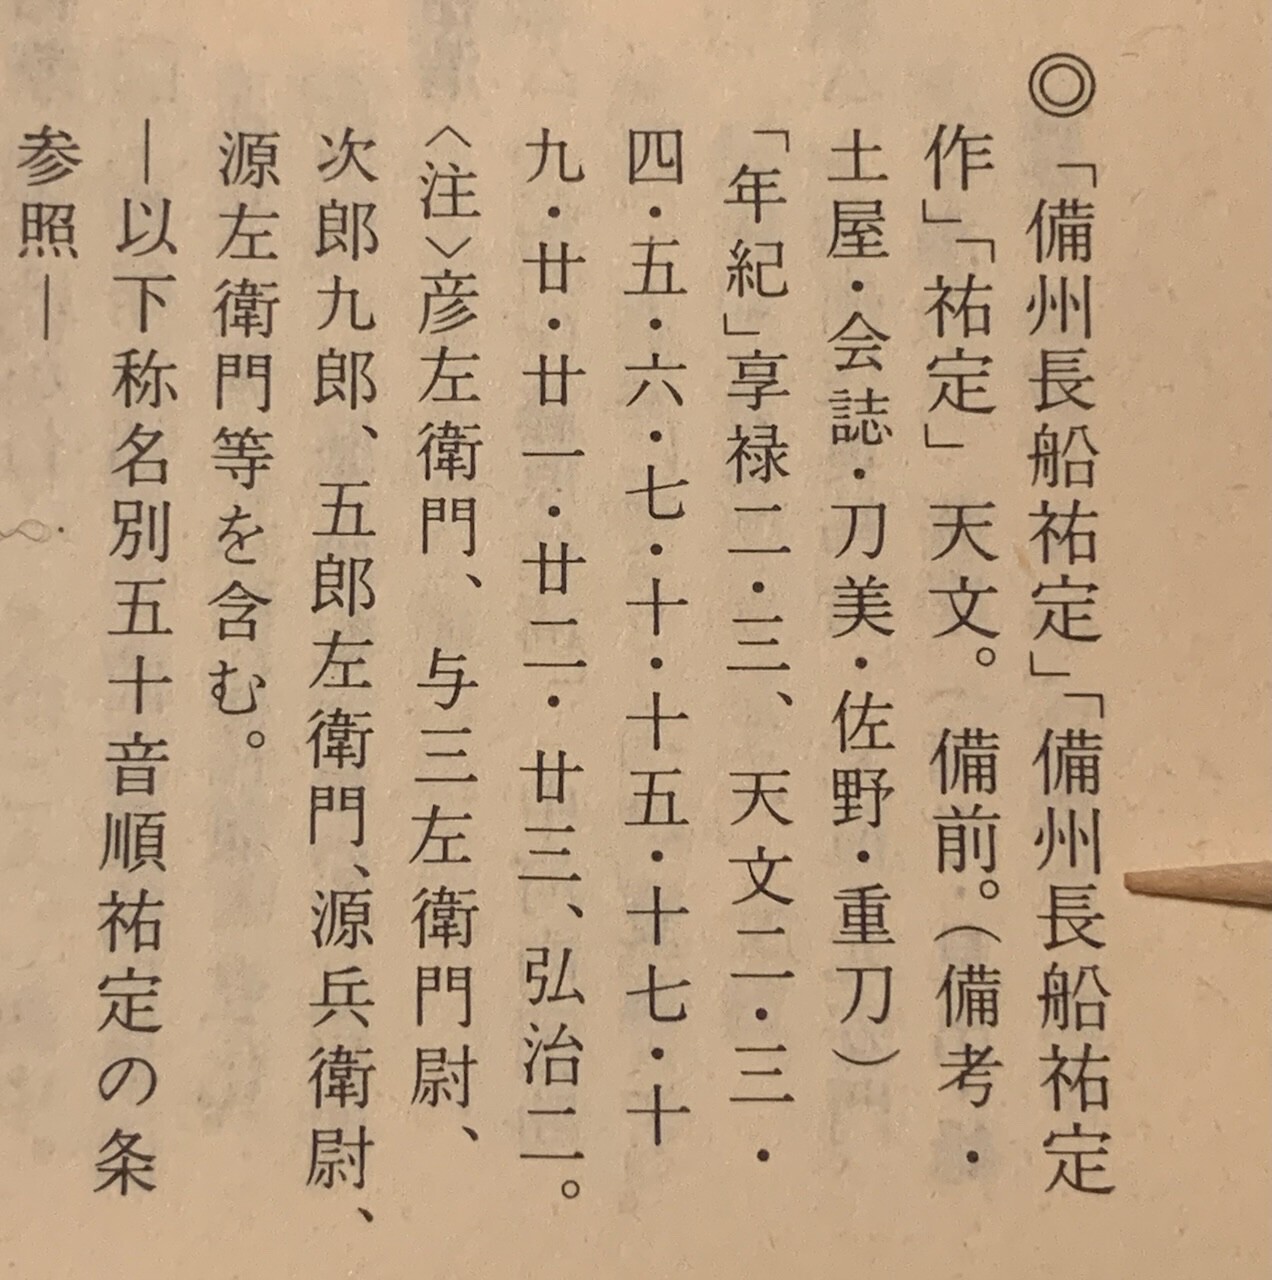 ◎「備州長船祐定」「備州長船祐定
作」「祐定」天文。備前。（備考・
土屋・会誌・刀美・佐野・重刀）
「年紀」享禄二・三、天文二・三・
四・五・六・七・十・十五・十七・十
九・廿・廿一・廿二・廿三、弘治二。
〈注〉彦左衛門、与三左衛門尉、
次郎九郎、五郎左衛門、源兵衛尉、
源左衛門等を含む。
―以下称名別五十音順祐定の条
参照―